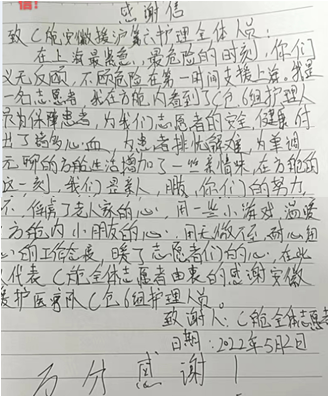 感谢信
致C舱安徽援沪第六护理全体人员:
在上海最紧急、最危险的时刻,你们
义无反顾,不顾危险在第一时间支援上海。我是
一名志愿者,我在方舱内看到了C舱6组护理人
员为保障患者,为我们志愿者的安全,健康付
出了诸多心血,为患者排忧解难,为单调
无聊的方舱生活增加了一些柔情味,在方舱的
这一刻,我们是亲人,眼 你们的努力
不 了老人家的心,用一些小游戏,温暖
方舱内小朋友的心,用无微不至,耐心
心的工作态度,暖了志愿者们的心,在此
代表C舱全体志愿者由衷的感谢安徽
援护医疗队C包6组护理人员。
致谢人:C舱全体志愿者
日期:2022年5月2日
万分感谢!